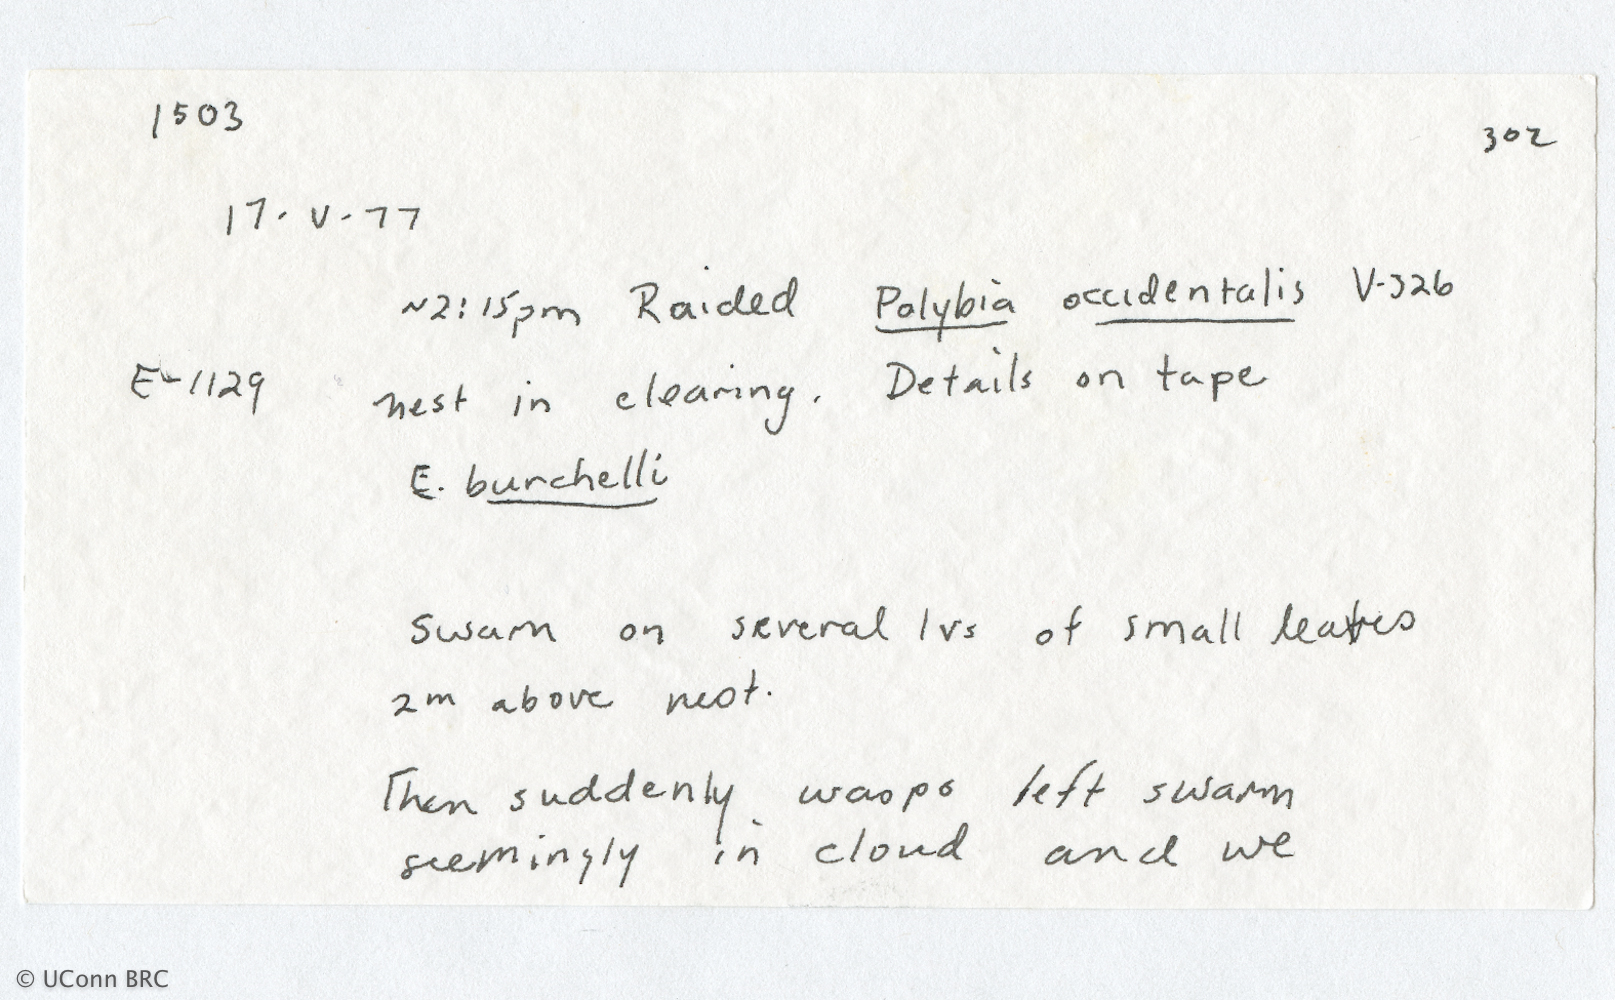 1503
302
17-V-77
~2:15pm Raided Polybia occidentalis V-326
E-1129 nest in clearing. Details on tape
E. burchelli
Swarm on several lvs of small leaves
2m above nest.
Then suddenly wasps left swarm
seemingly in cloud and we
© UConn BRC